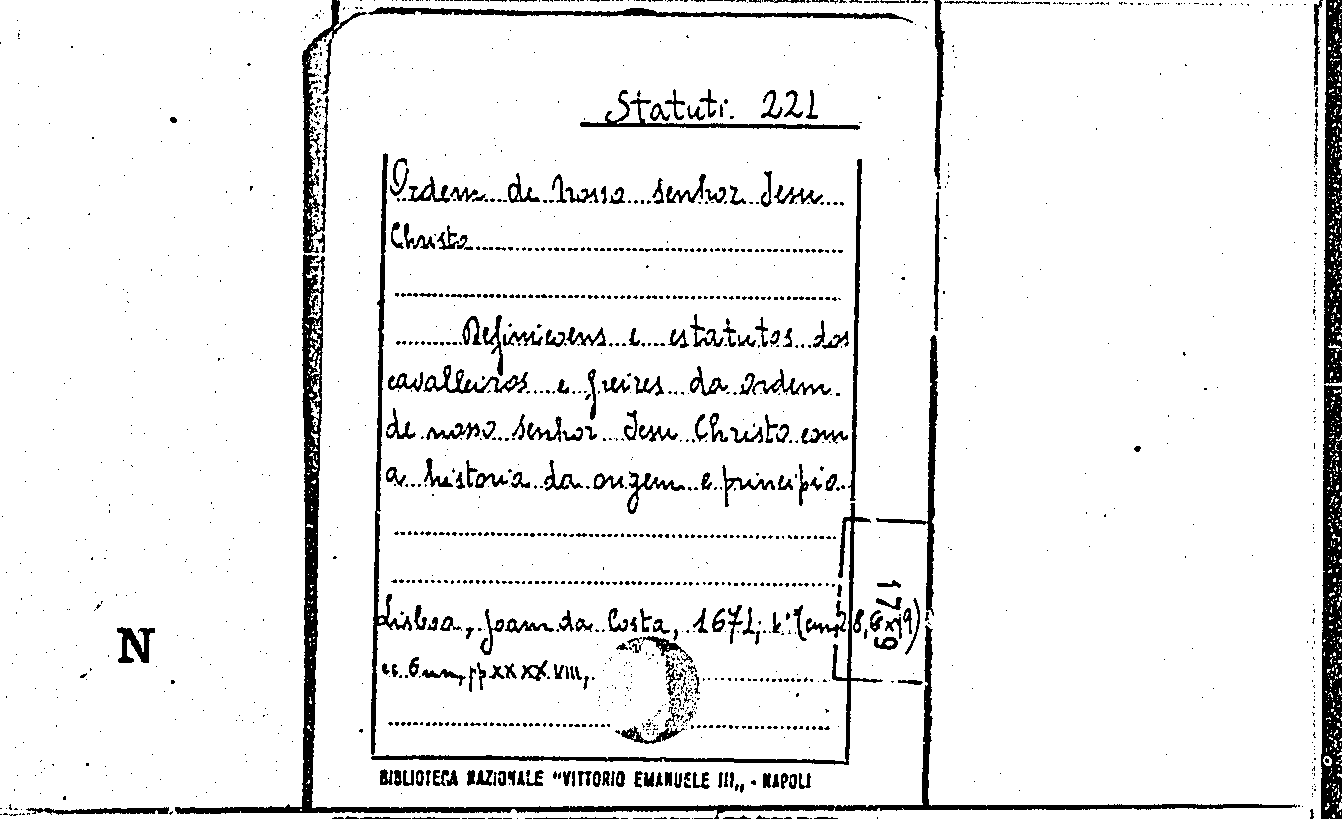 Statuti. 221
Ordem de nosso senhor Jesu
Christo
Definicoens e estatutos dos
cavalleiros e freires da ordem
de nosso senhor Jesu Christo com
a historia da origem e principio
Lisboa, Joam da Costa, 1671; (cm, 28,6x19)
cc. 6 nn, pp XXXXVIII,
1779
N
BIBLIOTECA NAZIONALE "VITTORIO EMANUELE III„ - NAPOLI